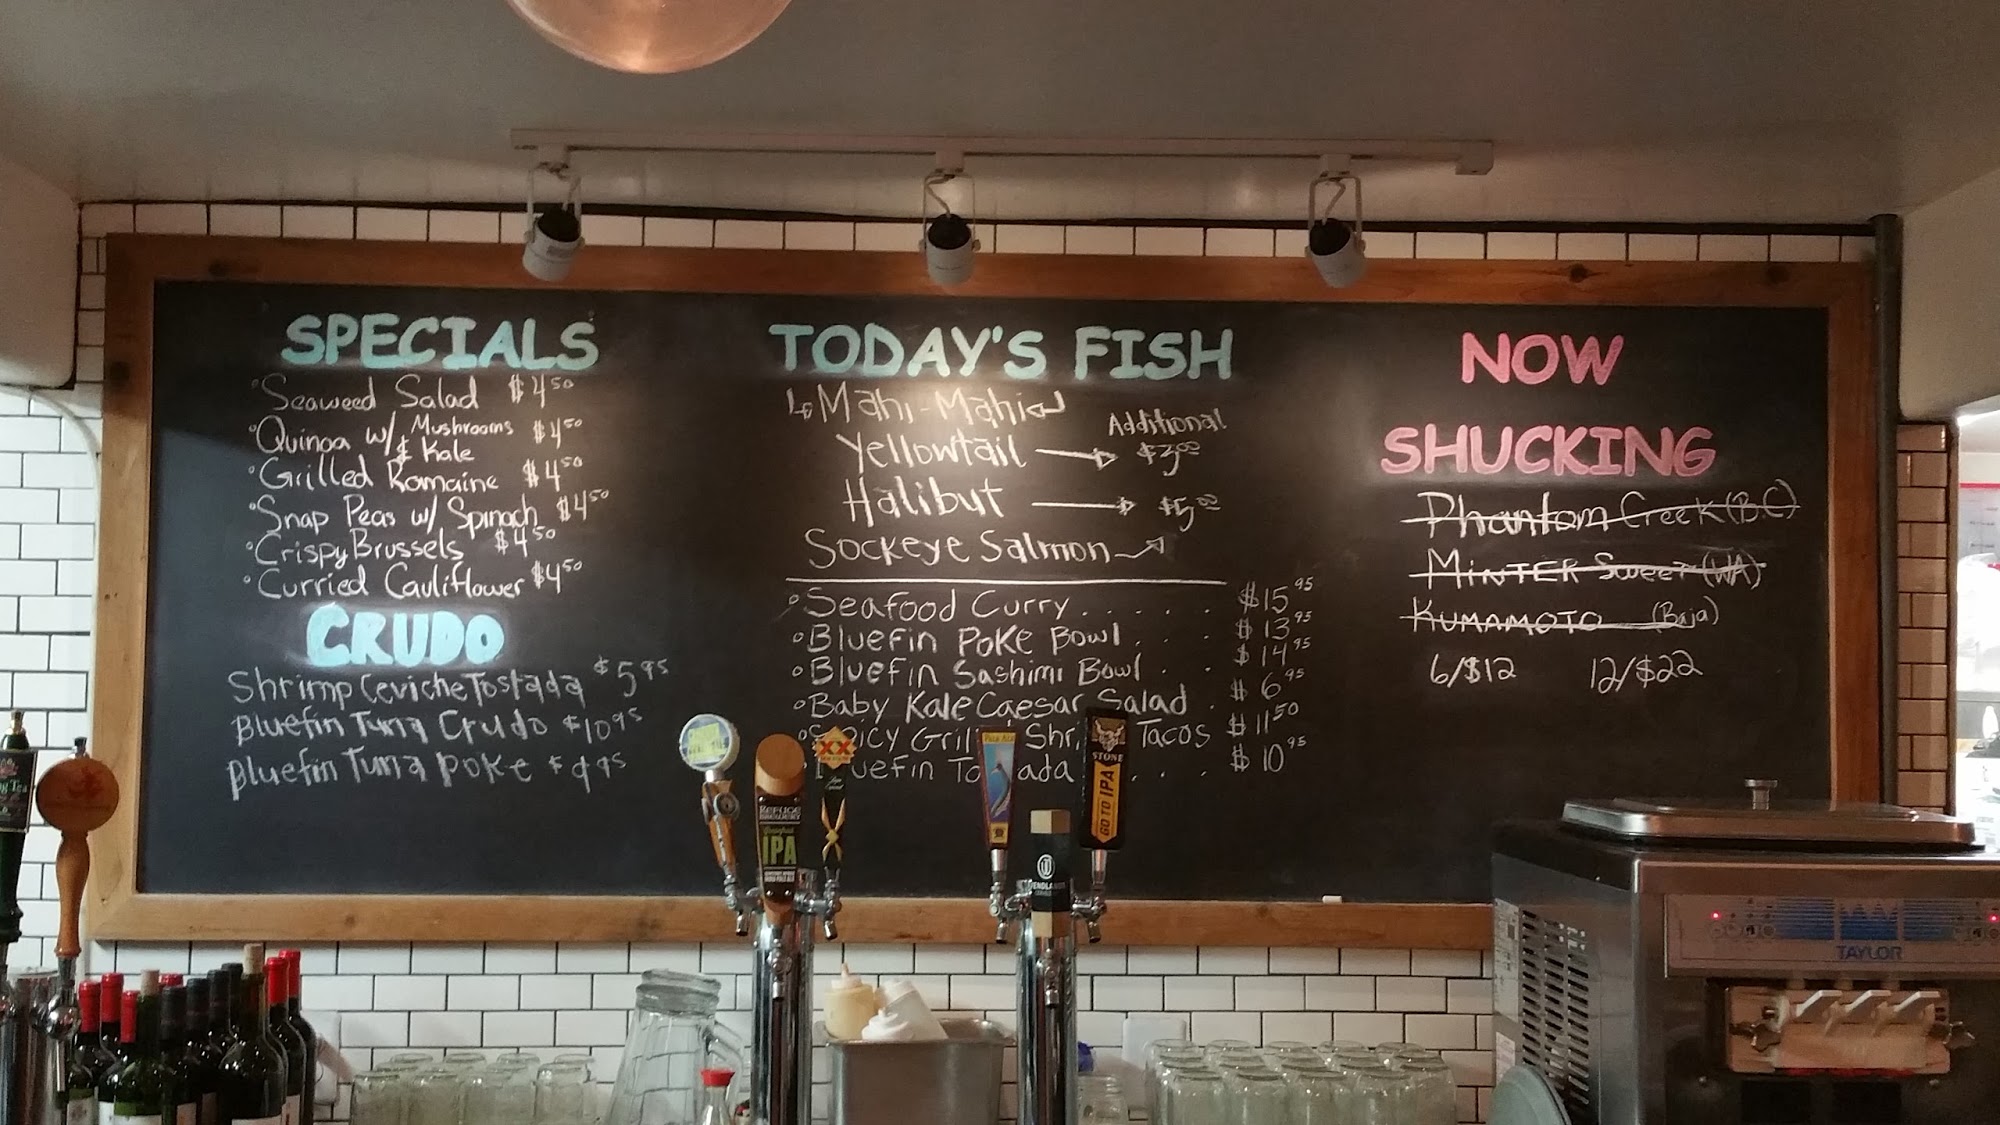 SPECIALS
Seaweed Salad $4.50
Quinoa w/ Mushrooms & Kale $4.50
Grilled Romaine $4.50
Snap Peas w/ Spinach $4.50
Crispy Brussels $4.50
Curried Cauliflower $4.50
CRUDO
Shrimp Ceviche Tostada $5.95
Bluefin Tuna Crudo $10.95
Bluefin Tuna Poke $9.95
TODAY'S FISH
Mahi-Mahi
Additional
Yellowtail $3.00
Halibut $5.00
Sockeye Salmon
Seafood Curry..... $15.95
Bluefin Poke Bowl... $13.95
Bluefin Sashimi Bowl.. $14.95
Baby Kale Caesar Salad. $6.95
Tacos $11.50
$10.95
NOW
SHUCKING
Phantom Creek (B.C)
MINTER Sweet (WA)
KUMAMOTO (Baja)
6/$12 12/$22
XX
REFUGE
BREWERY
IPA
STONE
GO TO IPA
TAYLOR